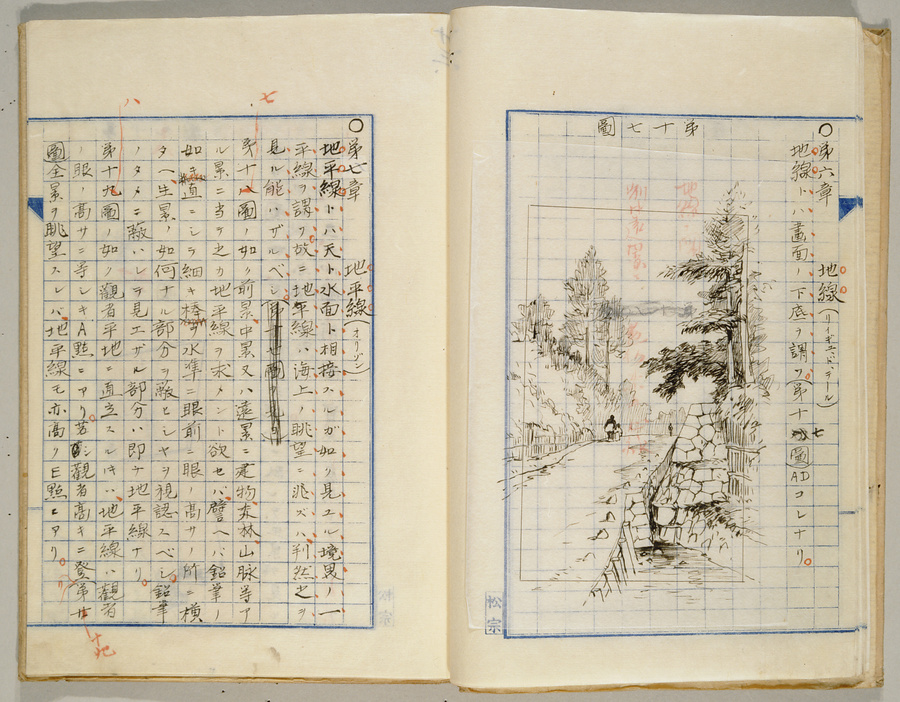 ○第六章　地線(リーギュ、ド、テール)
地線トハ畫面ノ下底ヲ謂フ(第十七圖)ADコレナリ。
第十七圖
松宗
○第七章　地平線(オリゾン)
地平線トハ天ト水面ト相接スルガ如ク見ユル境界ノ一
平線ヲ謂フ。故ニ地平線ハ海上ノ眺望ニ非ズバ判然之ヲ
見ル能ハザルベシ。
第十八圖ノ如ク前景中景又ハ遠景ニ建物森林山脈等ア
ル景ニ当テ之カ地平線ヲ求メント欲セバ譬ヘバ鉛筆ノ
如キ直ニシテ細キ棒ヲ水準ニ眼前ニ眼ノ高サノ所ニ横
タヘ生景ノ如何ナル部分ヲ敵ヒシヤヲ視認スベシ。鉛筆
ノタメニ敵ハレテ見エザル部分ハ即チ地平線ナリ。
第十九圖ノ如ク觀者平地ニ直立スルキハ、地平線ハ觀者
ノ眼ノ高サニ等シキA點ニアリ。若シ觀者高キニ登第廿
圖全景ヲ眺望スレバ、地平線モ亦高クE點ニアリ。
七
八